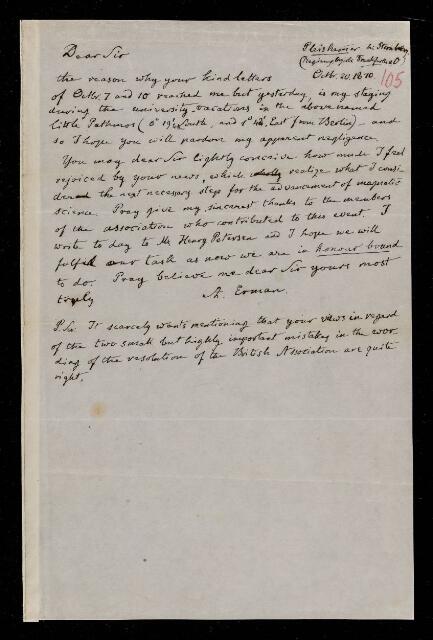 Dear Sir
bei Sternberg
(Regierungsbezirk Frankfurt a O)
Octbr. 20. 1870.
105
the reason why your kind letters
of Octbr. 7 and 10 reached me but yesterday, is my staying
during the university-vacations in the above named
little Pathmos (0° 19' South, and 1° East from Berlin) – and
so I hope you will pardon my apparent negligence.
You may dear Sir lightly conceive how much I feel
rejoiced by your news, which realize what I consi
dered the next necessary steps for the advancement of magnetic
science. Pray give my sincerest thanks to the members
of the association who contributed to this event. I
write to day to Mr Henry Petersen and I hope we will
fulfill our task as now we are in honour bound
to do. Pray believe me dear Sir yours most
truly
A. Erman.
P.S. It scarcely wants mentioning that your views in regard
of the two small but highly important mistakes in the wor
ding of the resolution of the British Association are quite
right.